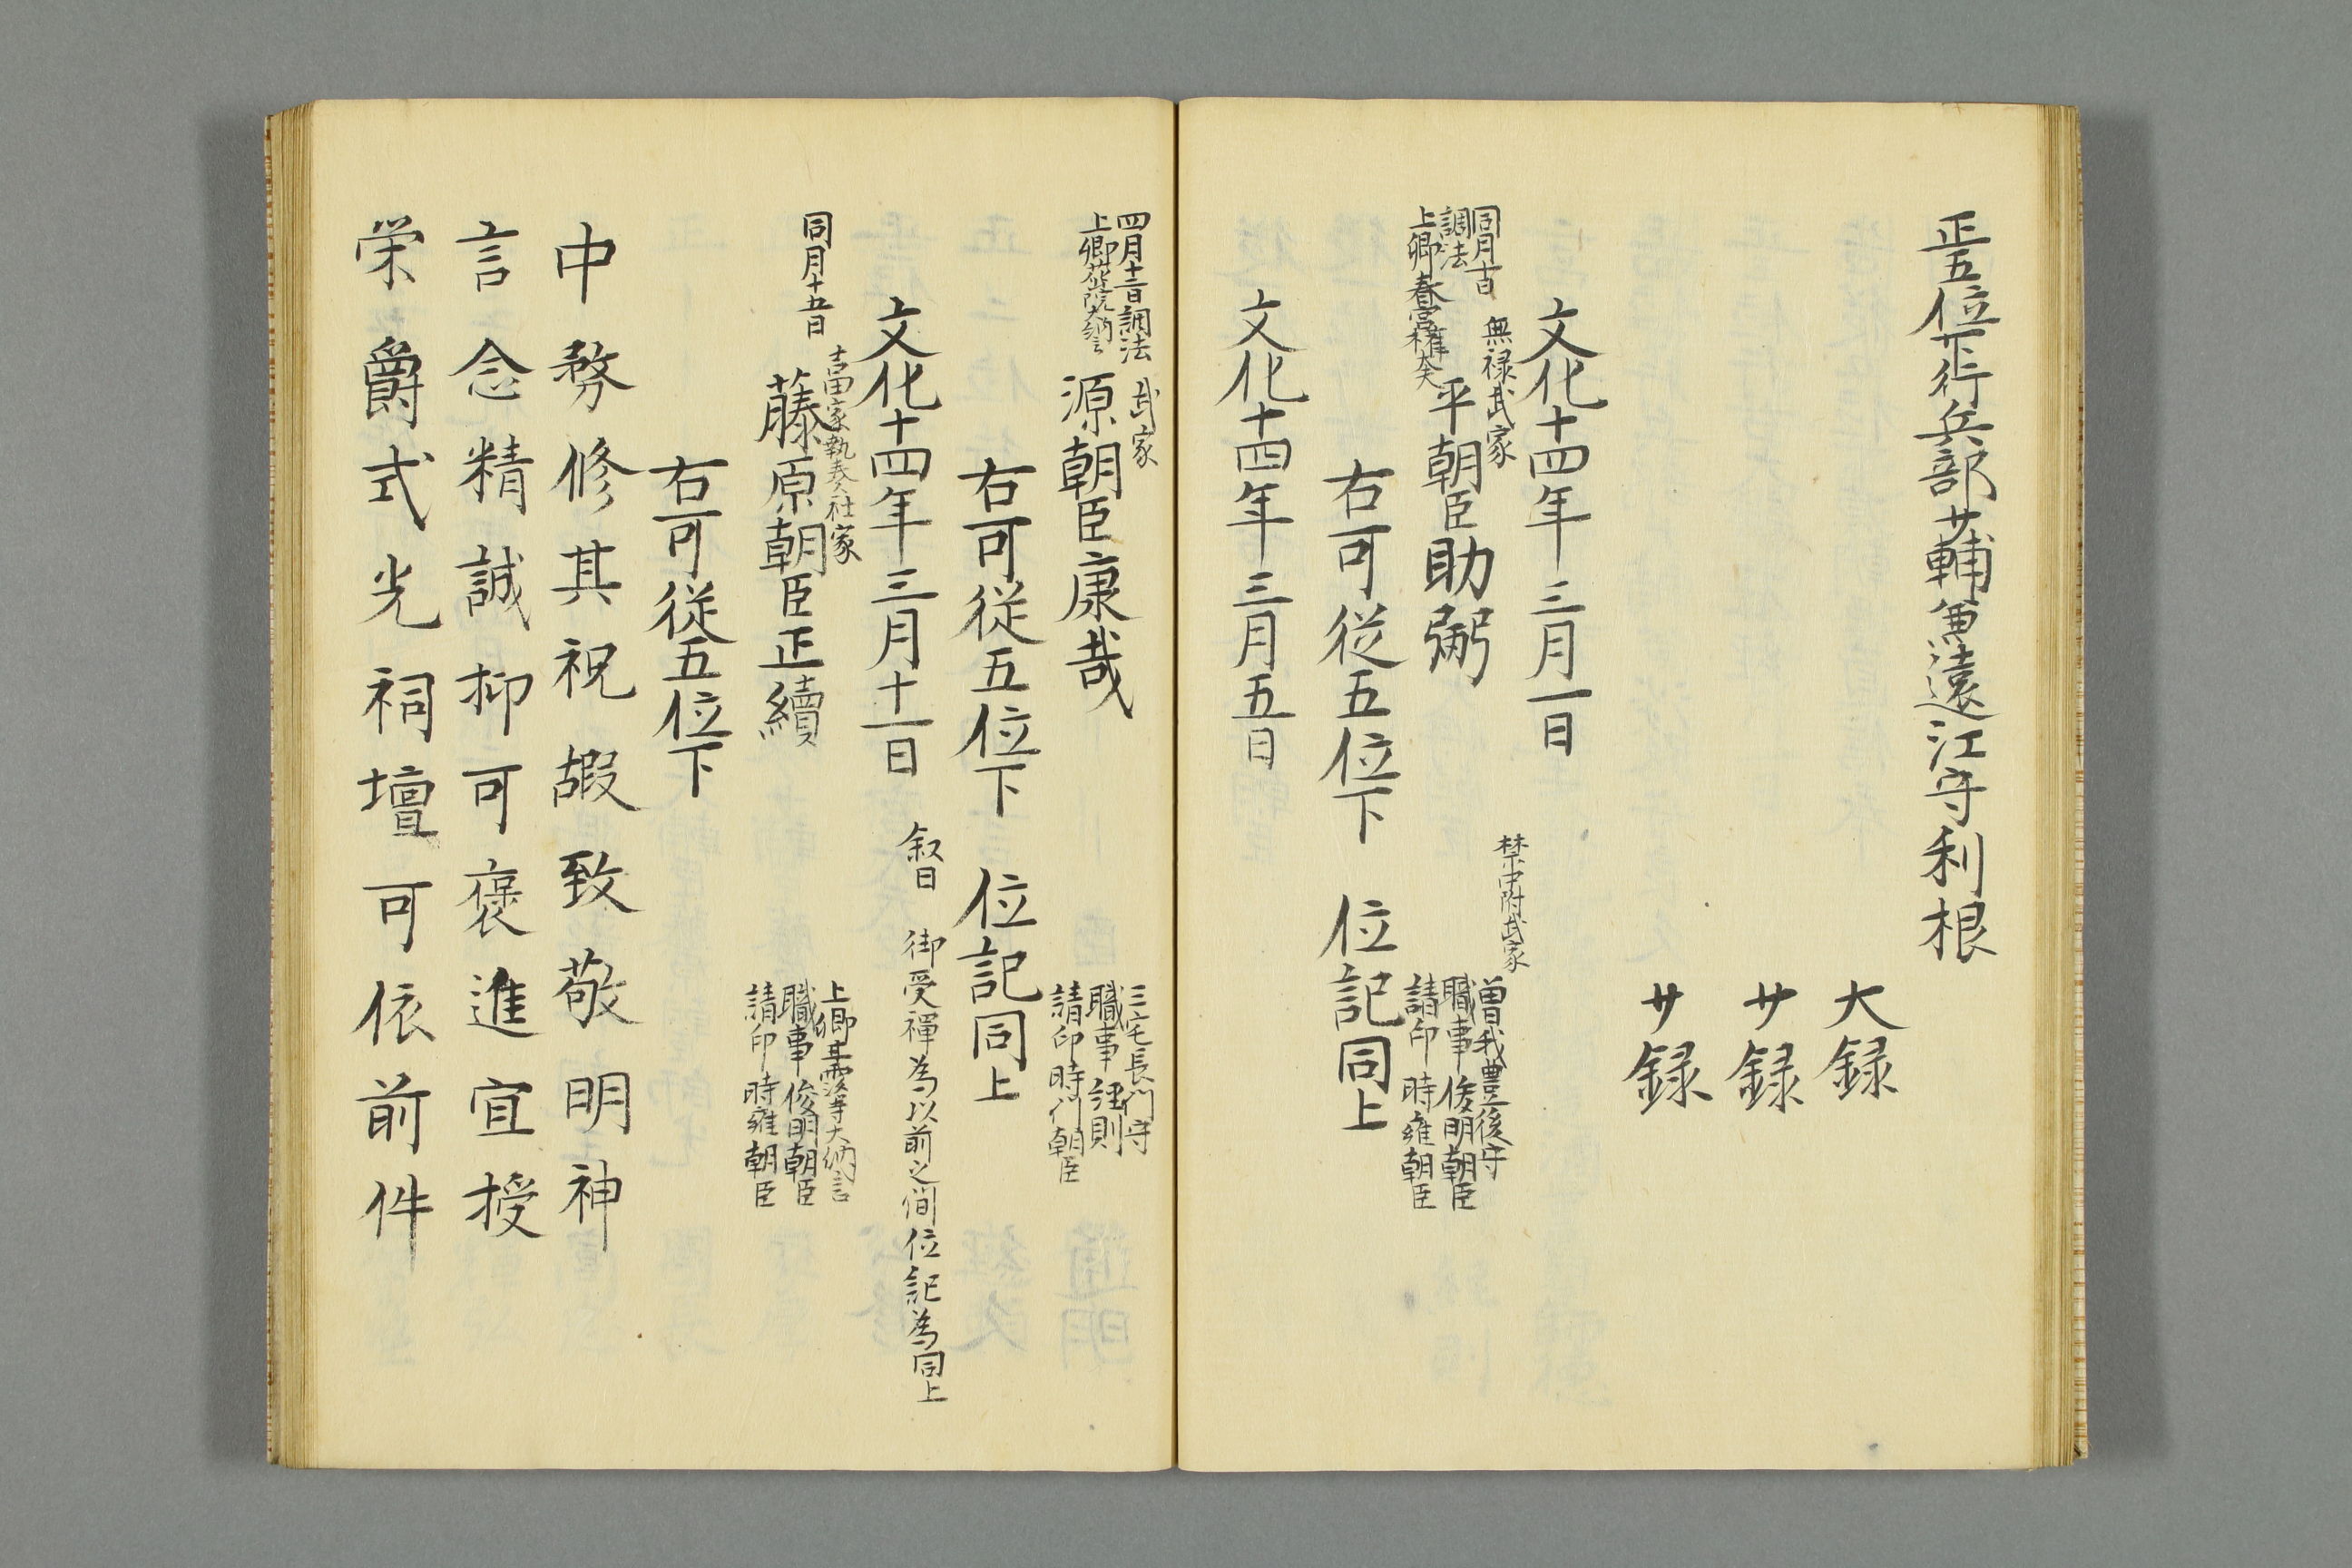 正五位下行兵部少輔兼遠江守利根
大録
少録
少録
文化十四年三月一日
無禄武家
禁中附武家
同月十一日
調法
上卿春宮権大夫
平朝臣助弼
曽我豊後守
職事俊明朝臣
請印時雍朝臣
右可従五位下 位記同上
文化十四年三月五日
四月十二日調法
上卿花山院大納言
武家
源朝臣康哉
三宅長門守
職事経則
請印時門朝臣
右可従五位下 位記同上
文化十四年三月十一日
叙日 御受禅為以前之間位記為同上
同月十五日
吉田家執奏社家
藤原朝臣正續
上卿 大納言
職事俊明朝臣
請印時雍朝臣
右可従五位下
中務修其祝嘏致敬明神
言念精誠抑可褒進宜授
栄爵式光祠壇可依前件